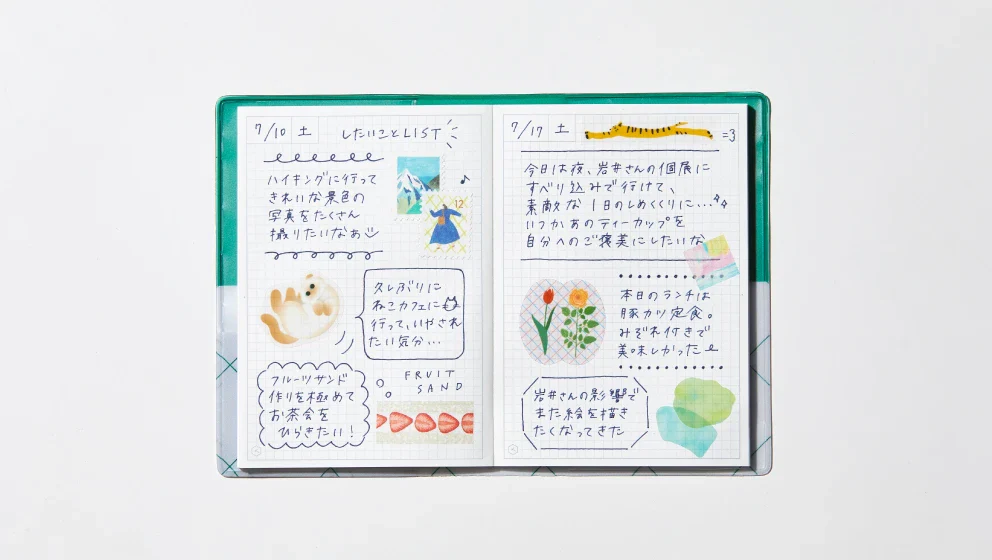 7/10 土 したいことLIST
ハイキングに行って
きれいな景色の
写真をたくさん
撮りたいなあ
12
久しぶりに
ねこカフェに
行って、いやされ
たい気分…
フルーツサンド
作りを極めて
お茶会を
ひらきたい！
FRUIT
SAND
7/17 土
=3
今日は夜、岩井さんの個展に
すべり込みで行けて、
素敵な1日のしめくくりに…
いつかあのティーカップを
自分へのご褒美にしたいな
本日のランチは
豚カツ定食。
みぞれ付きで
美味しかった
岩井さんの影響で
また絵を描き
たくなってきた